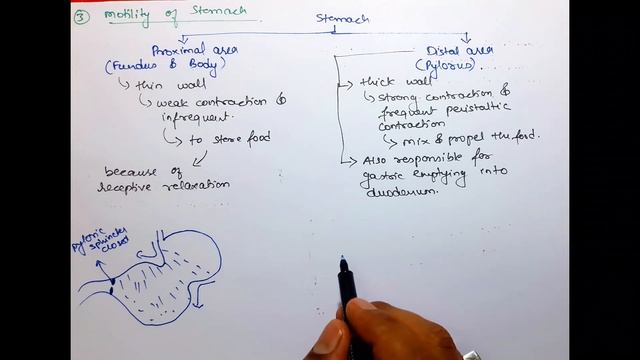 ③ Motility of Stomach
Stomach
Proximal area
(Fundus & Body)
thin wall
weak contraction &
infrequent.
to store food
because of
receptive relaxation
Distal area
(Pylorus).
thick wall
Strong contraction &
frequent peristaltic
contraction
mix & propel the food.
Also responsible for
gastric emptying into
duodenum.
pyloric
sphincter
closed